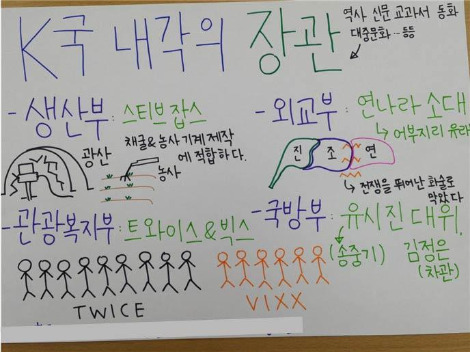 K국 내각의 장관
역사 신문 교과서 동화
대중문화 … 등등
-생산부 : 스티브잡스
광산
채굴&농사 기계제작
에 적합하다.
농사
-외교부 : 연나라 소대
↳ 어부지리 유래
진 조 연
→ 전쟁을 뛰어난 화술로
막았다
-관광복지부 : 트와이스&빅스
TWICE
VIXX
-국방부 : 유시진 대위,
(송중기)
김정은
(차관)